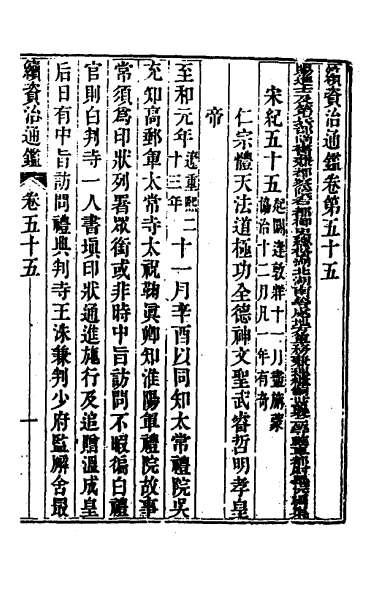 續資治通鑑卷第五十五
宋紀五十五 起閼逢敦牂十一月盡旃蒙協洽十二月凡一年有奇
仁宗體天法道極功全德神文聖武睿哲明孝皇
帝
至和元年 遼重熙二十三年 十一月辛酉以同知太常禮院吳
充知高郵軍太常寺太祝鞠眞卿知淮陽軍禮院故事
常須為印狀列署眾銜或非時中旨訪問不暇徧白禮
官則白判寺一人書填印狀通進施行及追贈溫成皇
后日有中旨訪問禮典判寺王洙兼判少府監廨舍最
續資治通鑑 卷五十五 一